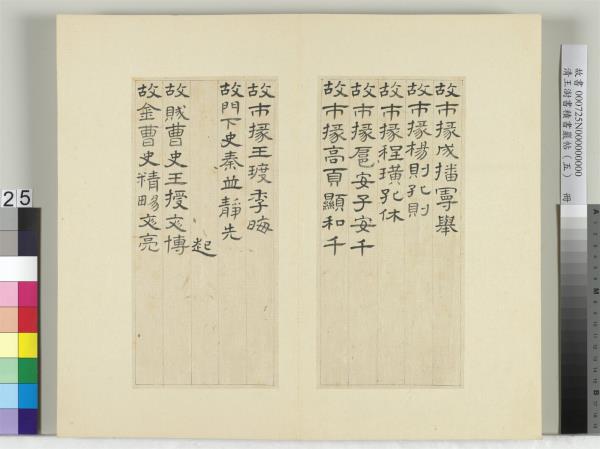 故書 000725N000000000 冊
清王澍書積書巖帖（五）
故市掾成播曼舉
故市掾楊則孔則
故市掾程璜孔休
故市掾扈安子安千
故市掾高頁顯和千
故市掾王季晦
故門下史秦並靜先
起
故賊曹史王授文博
故金曹史精暘文亮
25
A
M
B